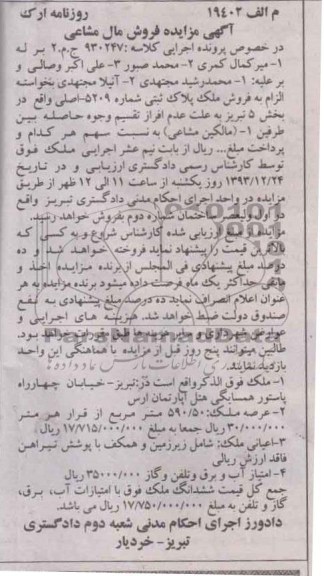 م الف ۱۹۴۰۲ روزنامه ارک
آگهی مزایده فروش مال مشاعی
در خصوص پرونده اجرایی کلاسه :۹۳۰۲۴۷ ج.م.۲ بر له
۱- میرکمال کمری ۲- محمد صبور ۳- علی اکبر وصالی و
بر علیه: ۱- محمدرشید مجتهدی ۲- آتیلا مجتهدی بخواسته
الزام به فروش ملک پلاک ثبتی شماره ۵۲۰۹- اصلی واقع در
بخش ۵ تبریز به علت عدم افراز تقسیم وجوه حاصله بین
طرفین ۱- (مالکین مشاعی) به نسبت سهم هر کدام و
پرداخت مبلغ... ریال از بابت نیم عشر اجرایی ملک فوق
توسط کارشناس رسمی دادگستری ارزیابی و در تاریخ
۱۳۹۳/۱۲/۲۴ روز یکشنبه از ساعت ۱۱ الی ۱۲ ظهر از طریق
مزایده در واحد اجرای احکام مدنی دادگستری تبریز واقع
در اول ولیعصر ساختمان شماره دوم بفروش خواهد رسید.
مزایده از مبلغ ارزیابی شده کارشناس شروع و به کسی که
بالاترین قیمت را پیشنهاد نماید فروخته خواهد شد و ده
درصد مبلغ پیشنهادی فی المجلس از برنده مزایده اخذ و
مابقی حداکثر یک ماه فرصت داده میشود برنده مزایده به هر
عنوان اعلام انصراف نماید ده درصد مبلغ پیشنهادی به نفع
صندوق دولت ضبط خواهد شد. هزینه های اجرایی و
عوارض شهرداری و سایر هزینه ها طبق مقررات خواهد بود.
طالبین میتوانند پنج روز قبل از مزایده با هماهنگی این واحد
بازدید نمایند.
۱- ملک فوق الذکر واقع است در: تبریز- خیابان چهارراه
پاستور همسایگی هتل آپارتمان ارس
۲- عرصه ملک: ۵۹۰/۵۰ متر مربع از قرار هر متر
۳۰/۰۰۰/۰۰۰ ریال جمعا به مبلغ ۱۷/۷۱۵/۰۰۰/۰۰۰ ریال
۳- اعیانی ملک: شامل زیرزمین و همکف با پوشش تیرآهن
فاقد ارزش ریالی
۴- امتیاز آب و برق و تلفن و گاز ۳۵۰۰۰/۰۰۰ ریال
جمع کل قیمت ششدانگ ملک فوق با امتیازات آب، برق،
گاز و تلفن به مبلغ ۱۷/۷۵۰/۰۰۰/۰۰۰ ریال می باشد.
دادورز اجرای احکام مدنی شعبه دوم دادگستری
تبریز- خردیار